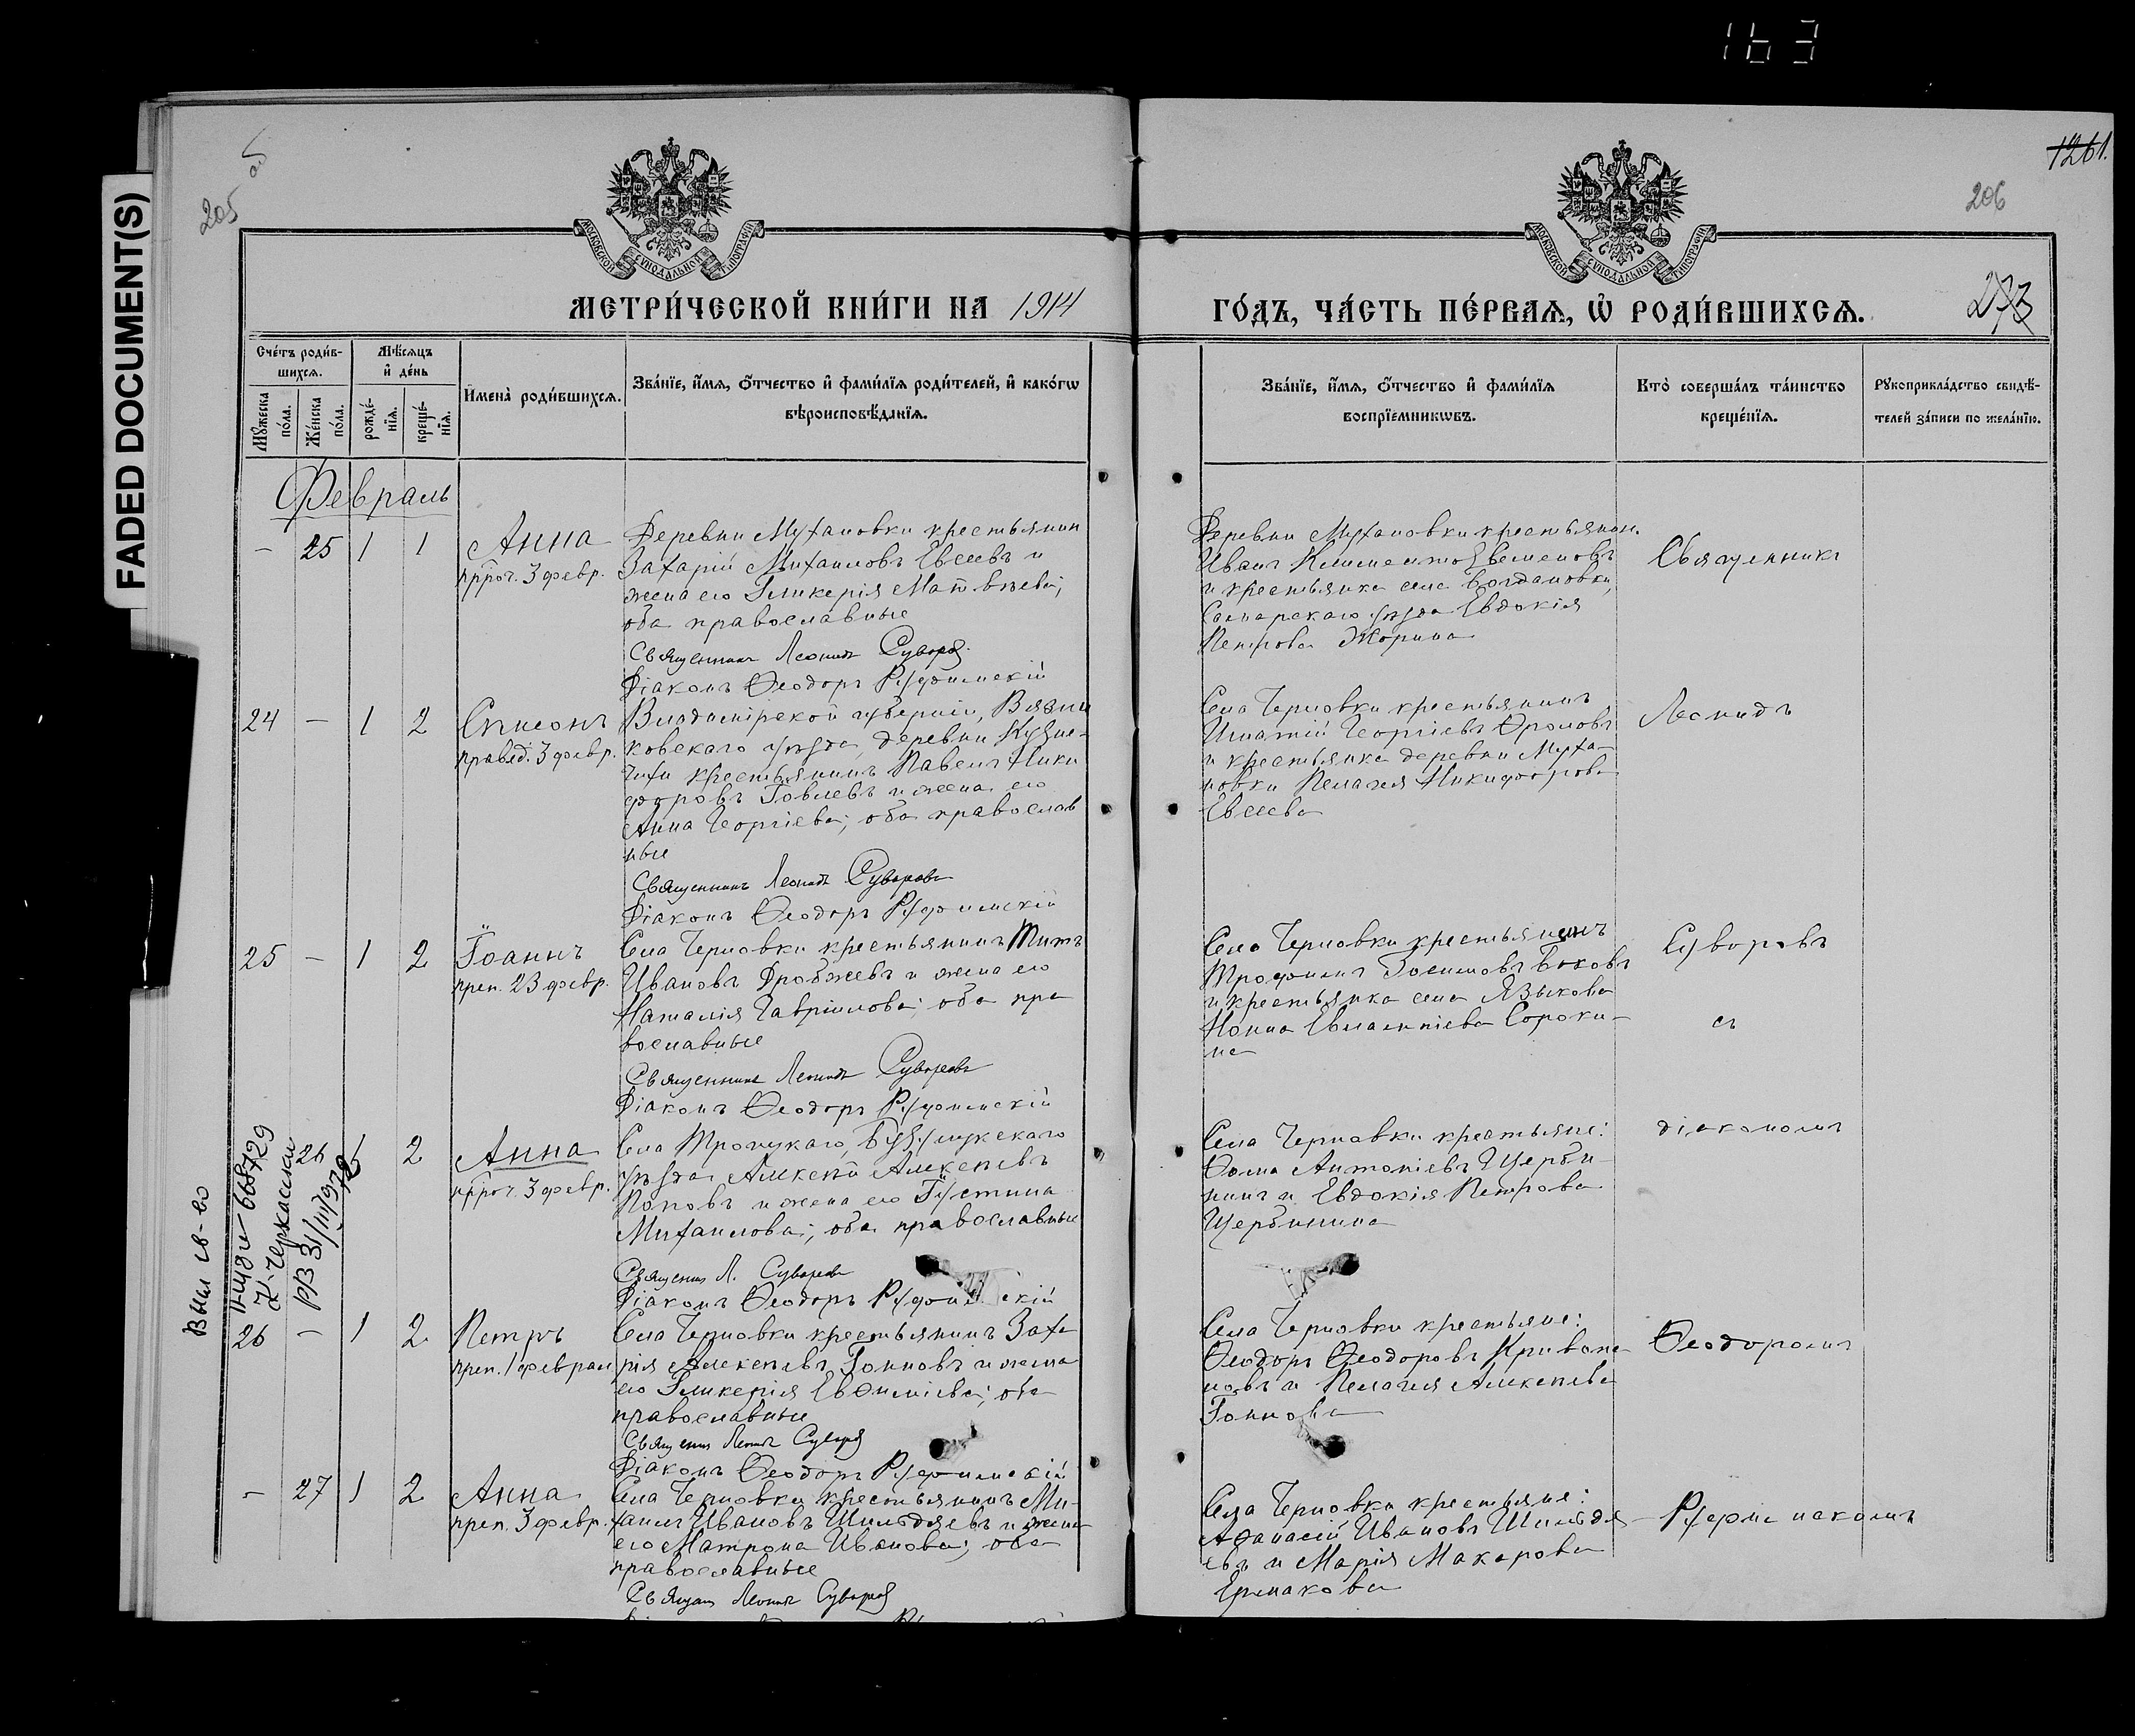 163
FADED DOCUMENT(S)
205
206
1261.
273
МОСКОВСКОЙ СѴНОДАЛЬНОЙ ТИПОГРАФІИ
МОСКОВСКОЙ СѴНОДАЛЬНОЙ ТИПОГРАФІИ
МЕТРИ́ЧЕСКОЙ КНИ́ГИ НА 1914
ГО́ДЪ, ЧА́СТЬ ПЕ́РВАѦ, Ѿ РОДИ́ВШИХСѦ.
Сче́тъ роди́в-
шихсѧ.
Мѣ́сѧцъ
и҆ де́нь
Мꙋ́жеска
по́ла.
Же́нска
по́ла.
рожде́-
нїѧ.
креще́-
нїѧ.
И҆мена̀ роди́вшихсѧ.
Зва́нїе, и҆́мѧ, ѻ҆́тчество и҆ фами́лїѧ роди́телей, и҆ како́гѡ
вѣроисповѣ́данїѧ.
Зва́нїе, и҆́мѧ, ѻ҆́тчество и҆ фами́лїѧ
воспрїе́мникѡвъ.
Кто̀ соверша́лъ та́инство
креще́нїѧ.
Рꙋкоприкла́дство свидѣ́-
телей за́писи по жела́нїю.
Февраль
- 25 1 1
Анна
прор. 3 февр.
Деревни Мухановки крестьянин
Захарій Михаиловъ Евсеевъ и
жена его Гликерія Матвѣева;
оба православные
Священникъ Леонидъ Суворов
Діаконъ Ѳеодоръ Руфимскій
Деревни Мухановки крестьянин
Иванъ
и крестьянка села Богдановки,
Самарскаго уѣзда Евдокія
Петрова Жорина
Священникъ
24 - 1 2
Сѵмеонъ
правед. 3 февр.
Владимірской губерніи, Вязни
ковскаго уѣзда, деревни Кузне-
чихи крестьянинъ Павелъ Ники
форовъ Говлевъ и жена его
Анна Георгіева; оба православ
ные
Священникъ Леонидъ Суворовъ
Діаконъ Ѳеодоръ Руфимскій
Села Черновки крестьянинъ
Игнатій Георгіевъ Фроловъ
и крестьянка деревни Муха-
новки Пелагія Никифорова
Евсеева
Леонидъ
25 - 1 2
Іоаннъ
преп. 23 февр.
Села Черновки крестьянинъ Титъ
Ивановъ Дробжевъ и жена его
Наталія Гавріилова; оба пра
вославные
Священникъ Леонидъ Суворовъ
Діаконъ Ѳеодоръ Руфимскій
Села Черновки крестьянинъ
Трофимъ Зосимовъ Боковъ
и крестьянка села Языкова
Нонна Евлампіева Сороки-
на
Суворовъ
съ
26 1 2
Анна
прор. 3 февр.
Села Троицкаго, Бузулукскаго
уѣзда Алексѣй Алексѣевъ
Поповъ и жена его Іустина
Михаилова; оба православные
Священ Л. Суворовъ
Діаконъ Ѳеодоръ Руфимскій
Села Черновки крестьяне:
Ѳома Антоніевъ Щерби-
нинъ и Евдокія Петрова
Щербинина
діакономъ
Вып св-во
26 - 1 2
Петръ
преп. 1 феврал
Села Черновки крестьянинъ Заха
рія Алексѣевъ Гонновъ и жена
его Гликерія Евѳиміева; оба
православные
Священ Леонид Суворов
Діаконъ Ѳеодоръ Руфимскій
Села Черновки крестьяне:
Ѳеодоръ Ѳеодоровъ Кривопа
новъ и Пелагія Алексѣева
Гоннова
Ѳеодоромъ
- 27 1 2
Анна
преп. 3 февр.
Села Черновки крестьянинъ Ми-
хаилъ Ивановъ Шиловдяевъ и жена
его Матрона Иванова; оба
православные
Священ Леонид Суворов
Села Черновки крестьяне:
Аѳанасій Ивановъ Шиловдя-
евъ и Марія Макарова
Ермакова